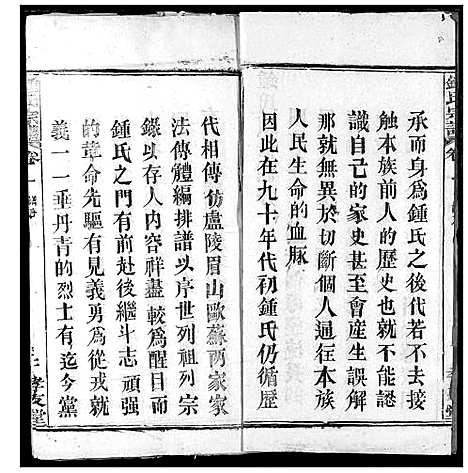 鍾氏宗譜
卷一
承而身爲鍾氏之後代若不去接
觸本族前人的歷史也就不能認
識自己的家史意至會産生誤解
那就無異於切斷個人這在本族
人民生命的血脉
因此在九十年代初鍾氏仍循歷
代相傳仿盧陵眉山歐蘇两家家
法傳體編排譜以序世列祖列宗
錄以存人内容祥盡較爲醒目而
鍾氏之門有前赴後繼斗志頑强
的革命先驅有見義勇爲從戎就
義一一垂丹青的烈士有迄今黨
宗譜
卷一
孝友堂